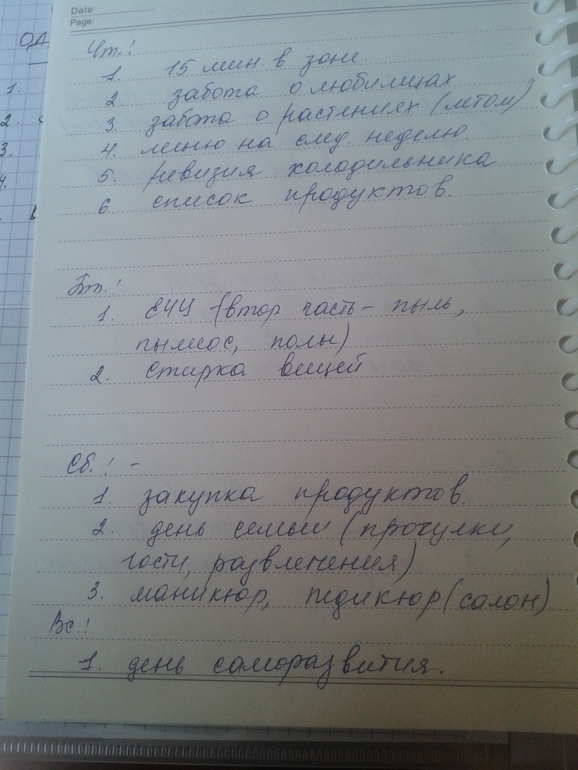 Date:
Page:
ОД
1.
2.
3.
4.
Чт.:
1. 15 мин в зоне.
2. забота о любимцах
3. забота о растениях (летом)
4. меню на след. неделю
5. ревизия холодильника
6. список продуктов.
Пт.:
1. ЕЧЦ (втор часть - пыль,
пылесос, полы)
2. Стирка вещей
Сб.: -
1. закупка продуктов.
2. день семьи (прогулки,
гости, развлечения)
3. маникюр, педикюр (салон)
Вс.:
1. день саморазвития.